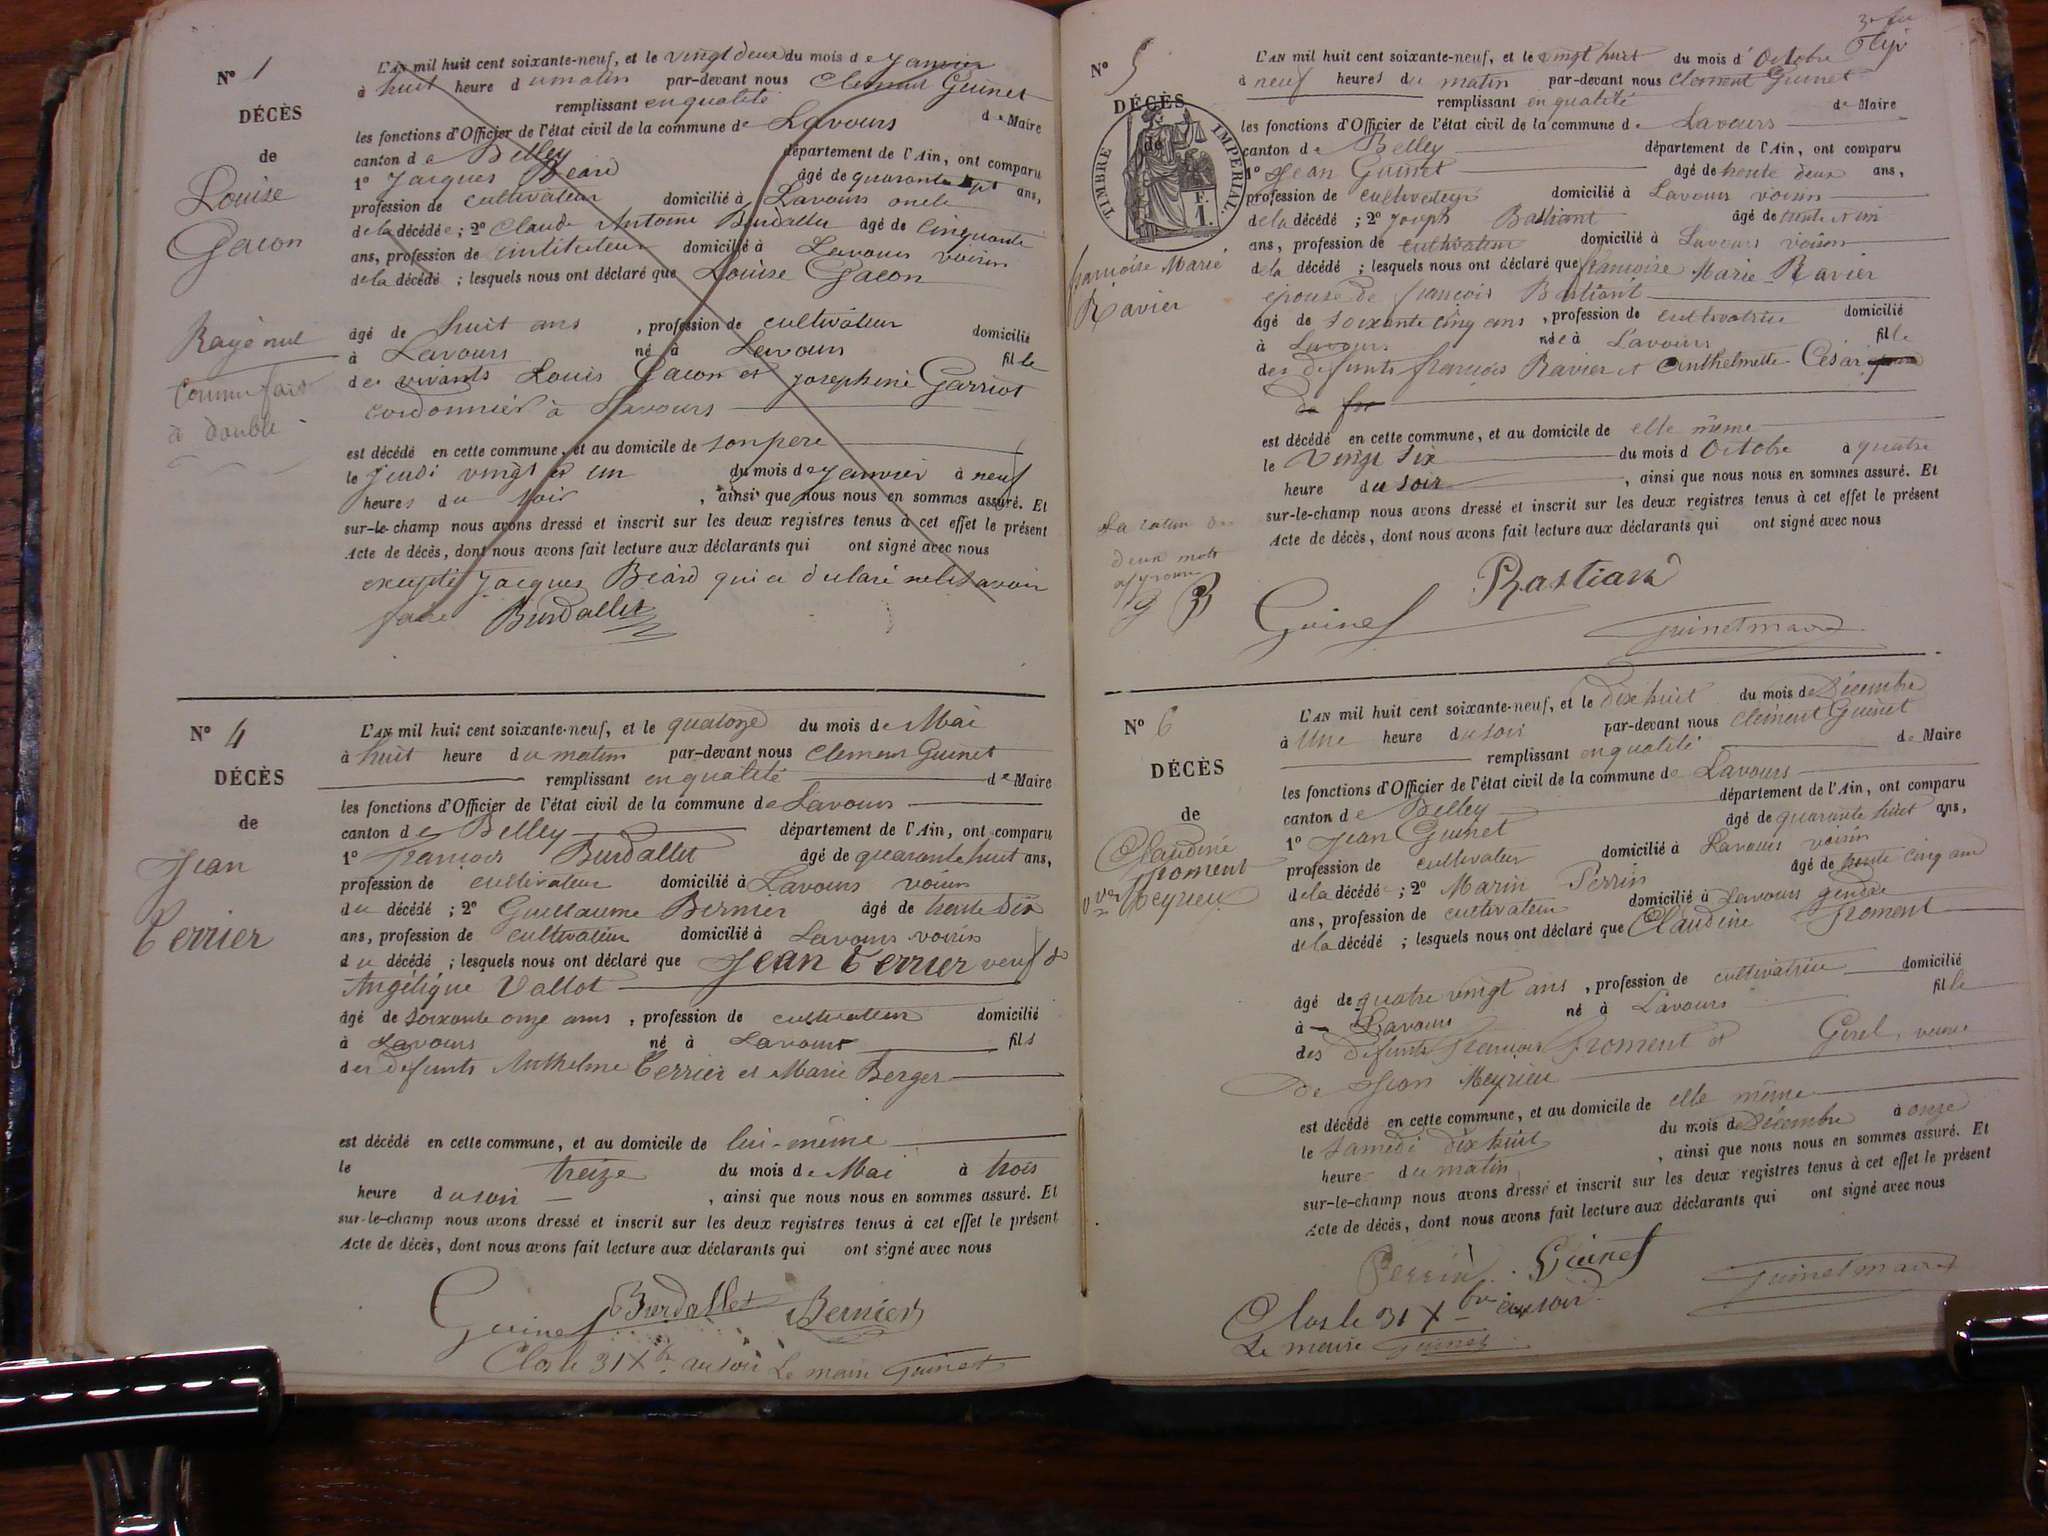 N° 1
DÉCÈS
de
Louise
Gacon
Rayé nul
comme fait
à double
L'AN mil huit cent soixante-neuf, et le vingt deux du mois de Janvier
à huit heure du matin par-devant nous Clement Guinet
remplissant en qualité de Maire
les fonctions d'Officier de l'état civil de la commune de Lavours
canton de Belley département de l'Ain, ont comparu
1° Jacques Béard âgé de quarante sept ans,
profession de cultivateur domicilié à Lavours oncle
de la décédée ; 2° Claude Antoine Burdallet âgé de cinquante
ans, profession de instituteur domicilié à Lavours voisin
de la décédé ; lesquels nous ont déclaré que Louise Gacon
âgé de huit ans , profession de cultivateur domicilié
à Lavours né à Lavours fille
des vivants Louis Gacon et Josephine Garriot
cordonnier à Lavours
est décédé en cette commune, et au domicile de son père
le Jeudi vingt et un du mois de Janvier à neuf
heures du soir , ainsi que nous nous en sommes assuré. Et
sur-le-champ nous avons dressé et inscrit sur les deux registres tenus à cet effet le présent
Acte de décès, dont nous avons fait lecture aux déclarants qui ont signé avec nous
excepté Jacques Béard qui a déclaré ne le savoir
faire Burdallet
N° 4
DÉCÈS
de
Jean
Terrier
L'AN mil huit cent soixante-neuf, et le quatorze du mois de Mai
à huit heure du matin par-devant nous Clement Guinet
remplissant en qualité de Maire
les fonctions d'Officier de l'état civil de la commune de Lavours
canton de Belley département de l'Ain, ont comparu
1° françois Burdallet âgé de quarante huit ans,
profession de cultivateur domicilié à Lavours voisin
du décédé ; 2° Guillaume Bernier âgé de trente six
ans, profession de cultivateur domicilié à Lavours voisin
du décédé ; lesquels nous ont déclaré que Jean Terrier veuf de
Angélique Vallot
âgé de soixante onze ans , profession de cultivateur domicilié
à Lavours né à Lavours fils
des defunts Anthelme Terrier et Marie Berger
est décédé en cette commune, et au domicile de lui-même
le treize du mois de Mai à trois
heure du soir , ainsi que nous nous en sommes assuré. Et
sur-le-champ nous avons dressé et inscrit sur les deux registres tenus à cet effet le présent
Acte de décès, dont nous avons fait lecture aux déclarants qui ont signé avec nous
Guinet Burdallet Bernier
Clos le 31 Xbre au soir Le maire Guinet
N° 5
DÉCÈS
de
TIMBRE IMPÉRIAL.
F.
1.
françoise Marie
Ravier
La rature de
deux mots
approuvé
G B
L'AN mil huit cent soixante-neuf, et le vingt huit du mois d'Octobre
à neuf heures du matin par-devant nous Clement Guinet
remplissant en qualité de Maire
les fonctions d'Officier de l'état civil de la commune de Lavours
canton de Belley département de l'Ain, ont comparu
1° Jean Guinet âgé de trente deux ans,
profession de cultivateur domicilié à Lavours voisin
de la décédé ; 2° Joseph Bastiant âgé de trente un
ans, profession de cultivateur domicilié à Lavours voisin
de la décédé ; lesquels nous ont déclaré que françoise Marie Ravier
épouse de françois Bastiant
âgé de soixante cinq ans , profession de cultivatrice domicilié
à Lavours née à Lavours fille
des defunts françois Ravier et Anthelmette César
est décédé en cette commune, et au domicile de elle même
le vingt six du mois d'Octobre à quatre
heure du soir , ainsi que nous nous en sommes assuré. Et
sur-le-champ nous avons dressé et inscrit sur les deux registres tenus à cet effet le présent
Acte de décès, dont nous avons fait lecture aux déclarants qui ont signé avec nous
Bastian
Guinet Guinet maire
N° 6
DÉCÈS
de
Claudine
froment
vve Meyrieu
L'AN mil huit cent soixante-neuf, et le dix huit du mois de Décembre
à Une heure du soir par-devant nous Clément Guinet
remplissant en qualité de Maire
les fonctions d'Officier de l'état civil de la commune de Lavours
canton de Belley département de l'Ain, ont comparu
1° Jean Guinet âgé de quarante huit ans,
profession de cultivateur domicilié à Lavours voisin
de la décédé ; 2° Marin Perrin âgé de trente cinq ans
ans, profession de cultivateur domicilié à Lavours gendre
de la décédé ; lesquels nous ont déclaré que Claudine froment
âgé de quatre vingt ans , profession de cultivatrice domicilié
à Lavours né à Lavours fille
des défunts françois froment et Girel, veuve
de Jean Meyrieu
est décédé en cette commune, et au domicile de elle même
le samedi dix huit du mois de Décembre à onze
heure du matin , ainsi que nous nous en sommes assuré. Et
sur-le-champ nous avons dressé et inscrit sur les deux registres tenus à cet effet le présent
Acte de décès, dont nous avons fait lecture aux déclarants qui ont signé avec nous
Perrin Guinet Guinet maire
Clos le 31 Xbre au soir
Le maire Guinet